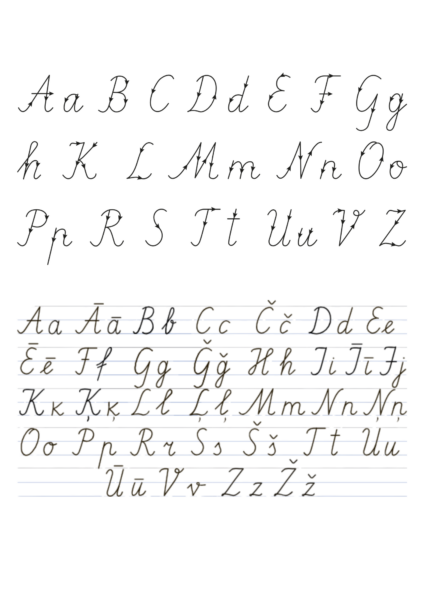 A a B C D d E F G g
h K L M m N n O o
P p R S T t U u V Z
A a Ā ā B b C c Č č D d E e
Ē ē F f G g Ģ ģ H h I i Ī ī J j
K k Ķ ķ L l Ļ ļ M m N n Ņ ņ
O o P p R r S s Š š T t U u
Ū ū V v Z z Ž ž